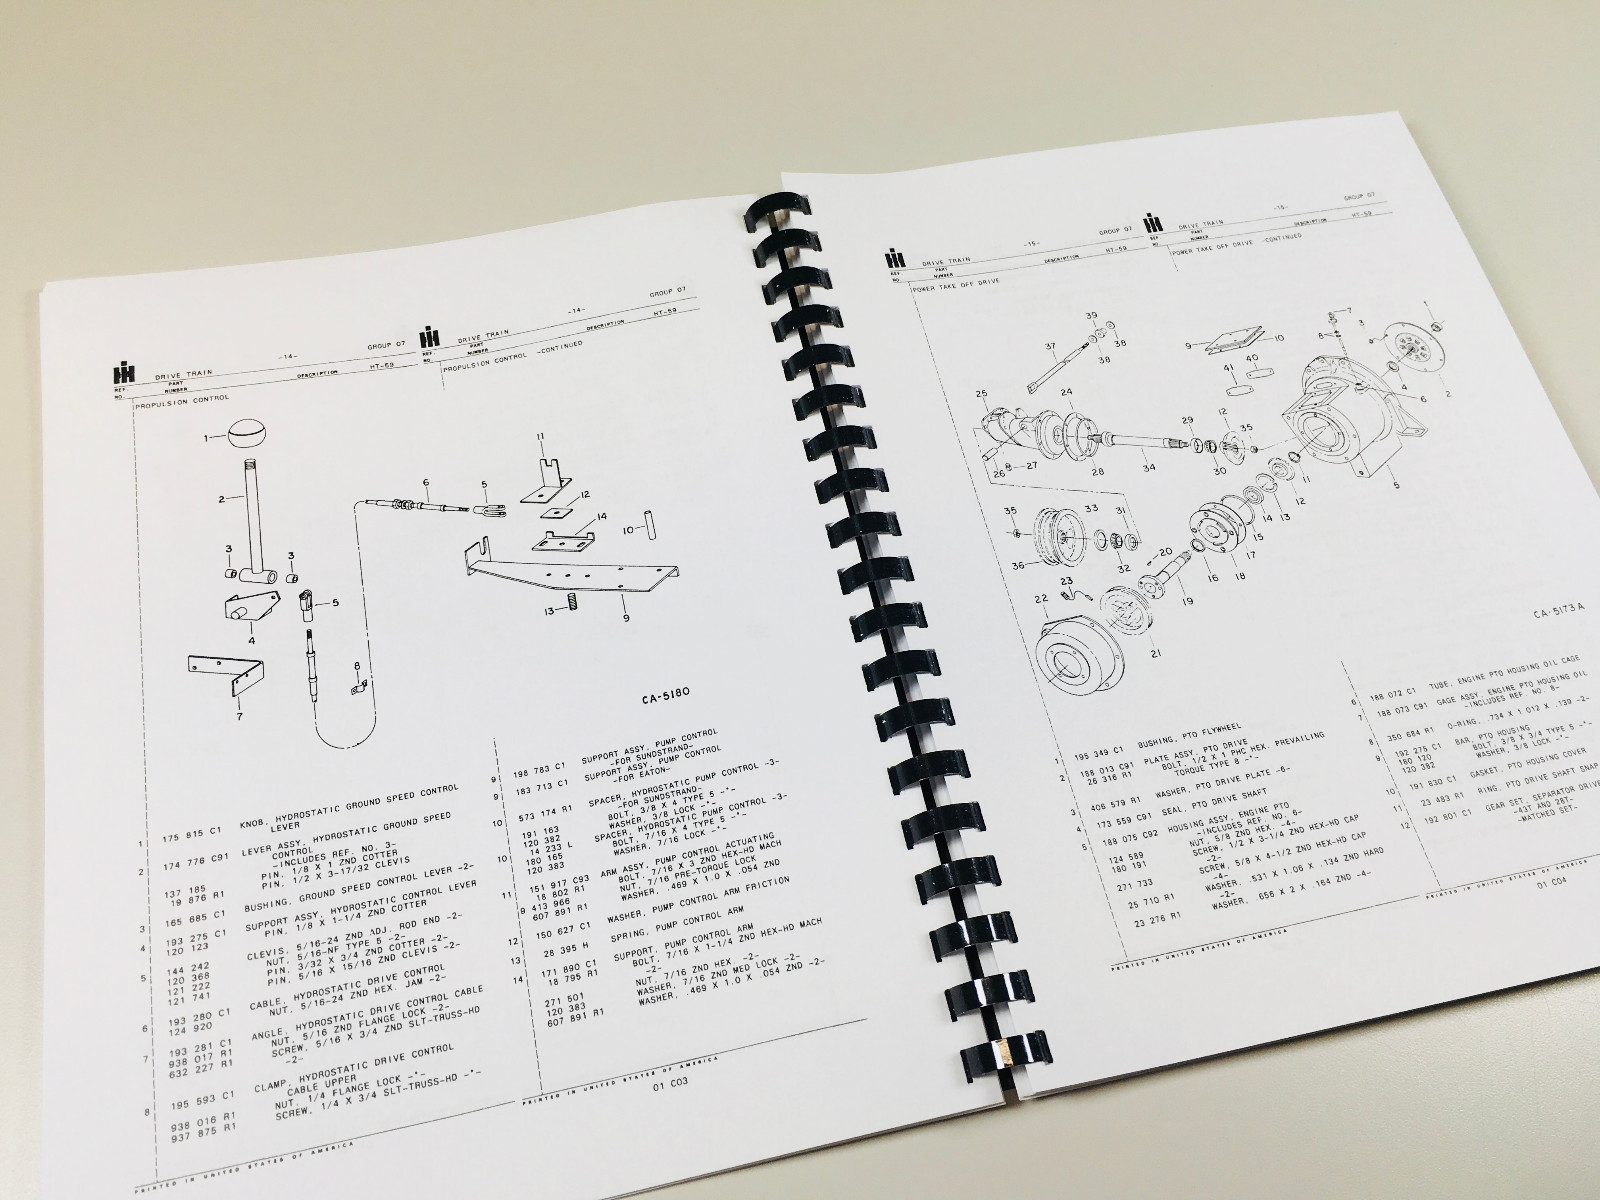 -14- GROUP 07
DRIVE TRAIN
REF. NO. PART NUMBER DESCRIPTION HT-59
PROPULSION CONTROL
1
2
3
3
4
5
7
8
6
5
-14- GROUP 07
DRIVE TRAIN
REF. NO. PART NUMBER DESCRIPTION HT-59
PROPULSION CONTROL -CONTINUED
11
12
14
10
13
9
CA-5180
1 175 815 C1 KNOB, HYDROSTATIC GROUND SPEED CONTROL
LEVER
2 174 776 C91 LEVER ASSY, HYDROSTATIC GROUND SPEED
CONTROL
-INCLUDES REF. NO. 3-
137 185 PIN, 1/8 X 1 ZND COTTER
19 876 R1 PIN, 1/2 X 3-17/32 CLEVIS
3 165 685 C1 BUSHING, GROUND SPEED CONTROL LEVER -2-
4 193 275 C1 SUPPORT ASSY, HYDROSTATIC CONTROL LEVER
120 123 PIN, 1/8 X 1-1/4 ZND COTTER
5 144 242 CLEVIS, 5/16-24 ZND ADJ. ROD END -2-
120 368 NUT, 5/16-NF TYPE 5 -2-
121 222 PIN, 3/32 X 3/4 ZND COTTER -2-
121 741 PIN, 5/16 X 15/16 ZND CLEVIS -2-
6 193 280 C1 CABLE, HYDROSTATIC DRIVE CONTROL
124 920 NUT, 5/16-24 ZND HEX. JAM -2-
7 193 281 C1 ANGLE, HYDROSTATIC DRIVE CONTROL CABLE
938 017 R1 NUT, 5/16 ZND FLANGE LOCK -2-
632 227 R1 SCREW, 5/16 X 3/4 ZND SLT-TRUSS-HD
-2-
8 195 593 C1 CLAMP, HYDROSTATIC DRIVE CONTROL
CABLE UPPER
938 016 R1 NUT, 1/4 FLANGE LOCK -*-
937 875 R1 SCREW, 1/4 X 3/4 SLT-TRUSS-HD -*-
PRINTED IN UNITED STATES OF AMERICA
9 198 783 C1 SUPPORT ASSY, PUMP CONTROL
-FOR SUNDSTRAND-
9 183 713 C1 SUPPORT ASSY, PUMP CONTROL
-FOR EATON-
10 573 174 R1 SPACER, HYDROSTATIC PUMP CONTROL -3-
-FOR SUNDSTRAND-
191 163 BOLT, 3/8 X 4 TYPE 5 -*-
120 382 WASHER, 3/8 LOCK -*-
10 14 233 L SPACER, HYDROSTATIC PUMP CONTROL -3-
180 165 BOLT, 7/16 X 4 TYPE 5 -*-
120 383 WASHER, 7/16 LOCK -*-
11 151 917 C93 ARM ASSY, PUMP CONTROL ACTUATING
18 802 R1 BOLT, 7/16 X 3 ZND HEX-HD MACH
9 413 966 NUT, 7/16 PRE-TORQUE LOCK
607 891 R1 WASHER, .469 X 1.0 X .054 ZND
12 150 627 C1 WASHER, PUMP CONTROL ARM FRICTION
13 28 395 H SPRING, PUMP CONTROL ARM
14 171 890 C1 SUPPORT, PUMP CONTROL ARM
18 795 R1 BOLT, 7/16 X 1-1/4 ZND HEX-HD MACH
-2-
271 501 NUT, 7/16 ZND HEX. -2-
120 383 WASHER, 7/16 ZND MED LOCK -2-
607 891 R1 WASHER, .469 X 1.0 X .054 ZND -2-
PRINTED IN UNITED STATES OF AMERICA
01 C03
-15- GROUP 07
DRIVE TRAIN
REF. NO. PART NUMBER DESCRIPTION HT-59
POWER TAKE OFF DRIVE
-15- GROUP 07
DRIVE TRAIN
REF. NO. PART NUMBER DESCRIPTION HT-59
POWER TAKE OFF DRIVE -CONTINUED
39
38
38
37
9
10
40
41
7
8
3
4
6
2
5
25
24
29
12
35
26
8
27
28
34
30
11
12
13
14
15
17
18
16
35
33
31
32
36
20
19
23
22
21
CA-5173A
1 195 349 C1 BUSHING, PTO FLYWHEEL
2 188 013 C91 PLATE ASSY, PTO DRIVE
26 316 R1 BOLT, 1/2 X 1 PHC HEX. PREVAILING
TORQUE TYPE 8 -*-
3 406 579 R1 WASHER, PTO DRIVE PLATE -6-
4 173 559 C91 SEAL, PTO DRIVE SHAFT
5 188 075 C92 HOUSING ASSY, ENGINE PTO
-INCLUDES REF. NO. 6-
124 589 NUT, 5/8 ZND HEX. -4-
180 191 SCREW, 1/2 X 3-1/4 ZND HEX-HD CAP
-2-
271 733 SCREW, 5/8 X 4-1/2 ZND HEX-HD CAP
-4-
25 710 R1 WASHER, .531 X 1.06 X .134 ZND HARD
-2-
23 276 R1 WASHER, .656 X 2 X .164 ZND -4-
PRINTED IN UNITED STATES OF AMERICA
6 188 072 C1 TUBE, ENGINE PTO HOUSING OIL CAGE
7 188 073 C91 GAGE ASSY, ENGINE PTO HOUSING OIL
-INCLUDES REF. NO. 8-
8 350 684 R1 O-RING, .734 X 1.012 X .139 -2-
9 192 275 C1 BAR, PTO HOUSING
180 120 BOLT, 3/8 X 3/4 TYPE 5 -*-
120 382 WASHER, 3/8 LOCK -*-
10 191 830 C1 GASKET, PTO HOUSING COVER
11 23 483 R1 RING, PTO DRIVE SHAFT SNAP
12 192 801 C1 GEAR SET, SEPARATOR DRIVE
-43T AND 28T-
-MATCHED SET-
PRINTED IN UNITED STATES OF AMERICA
01 C04